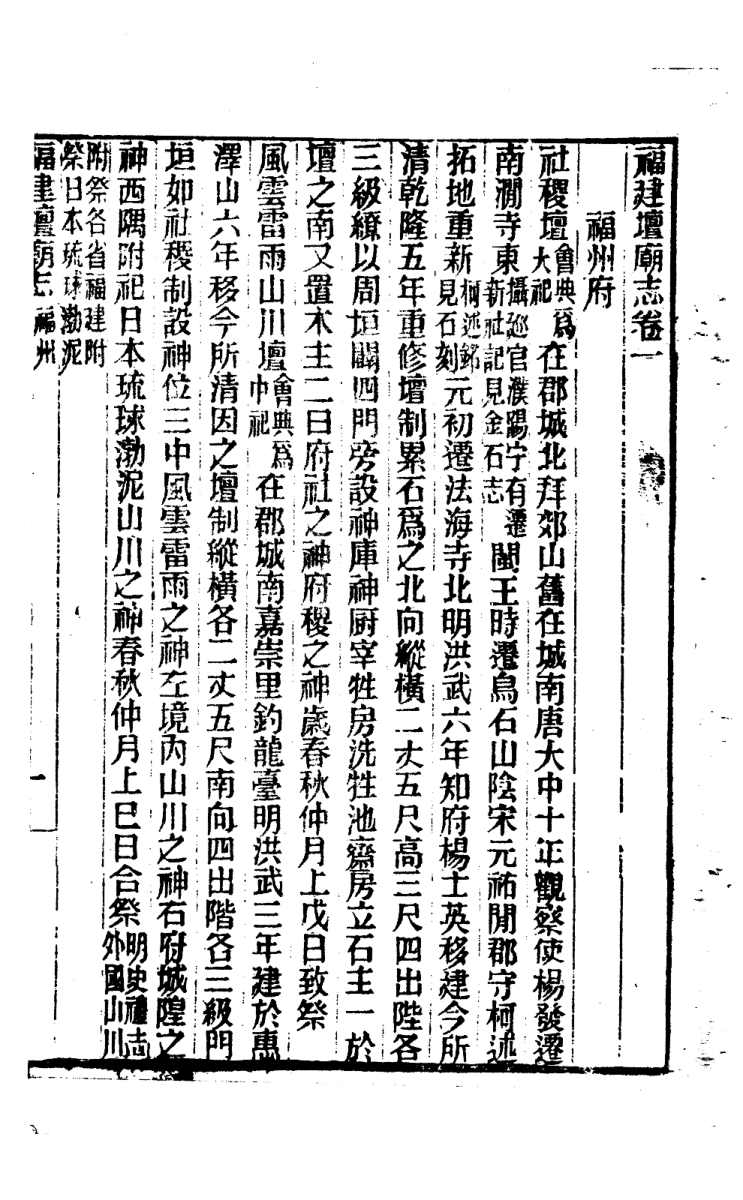 福建壇廟志卷一
福州府
社稷壇會典爲大祀在郡城北拜郊山舊在城南唐大中十年觀察使楊發遷
南澗寺東攝巡官濮陽宁有遷新社記見金石志閩王時遷烏石山陰宋元祐閒郡守柯述
拓地重新柯述銘見石刻元初遷法海寺北明洪武六年知府楊士英移建今所
清乾隆五年重修壇制累石爲之北向縱橫二丈五尺高三尺四出陛各
三級繚以周垣闢四門旁設神庫神厨宰牲房洗牲池齋房立石主一於
壇之南又置木主二曰府社之神府稷之神歲春秋仲月上戊日致祭
風雲雷雨山川壇會典爲中祀在郡城南嘉崇里釣龍臺明洪武三年建於惠
澤山六年移今所清因之壇制縱橫各二丈五尺南向四出階各三級門
垣如社稷制設神位三中風雲雷雨之神左境內山川之神右府城隍之
神西隅附祀日本琉球渤泥山川之神春秋仲月上巳日合祭明史禮志外國山川
附祭各省福建附祭日本琉球渤泥
福建壇廟志 福州
一